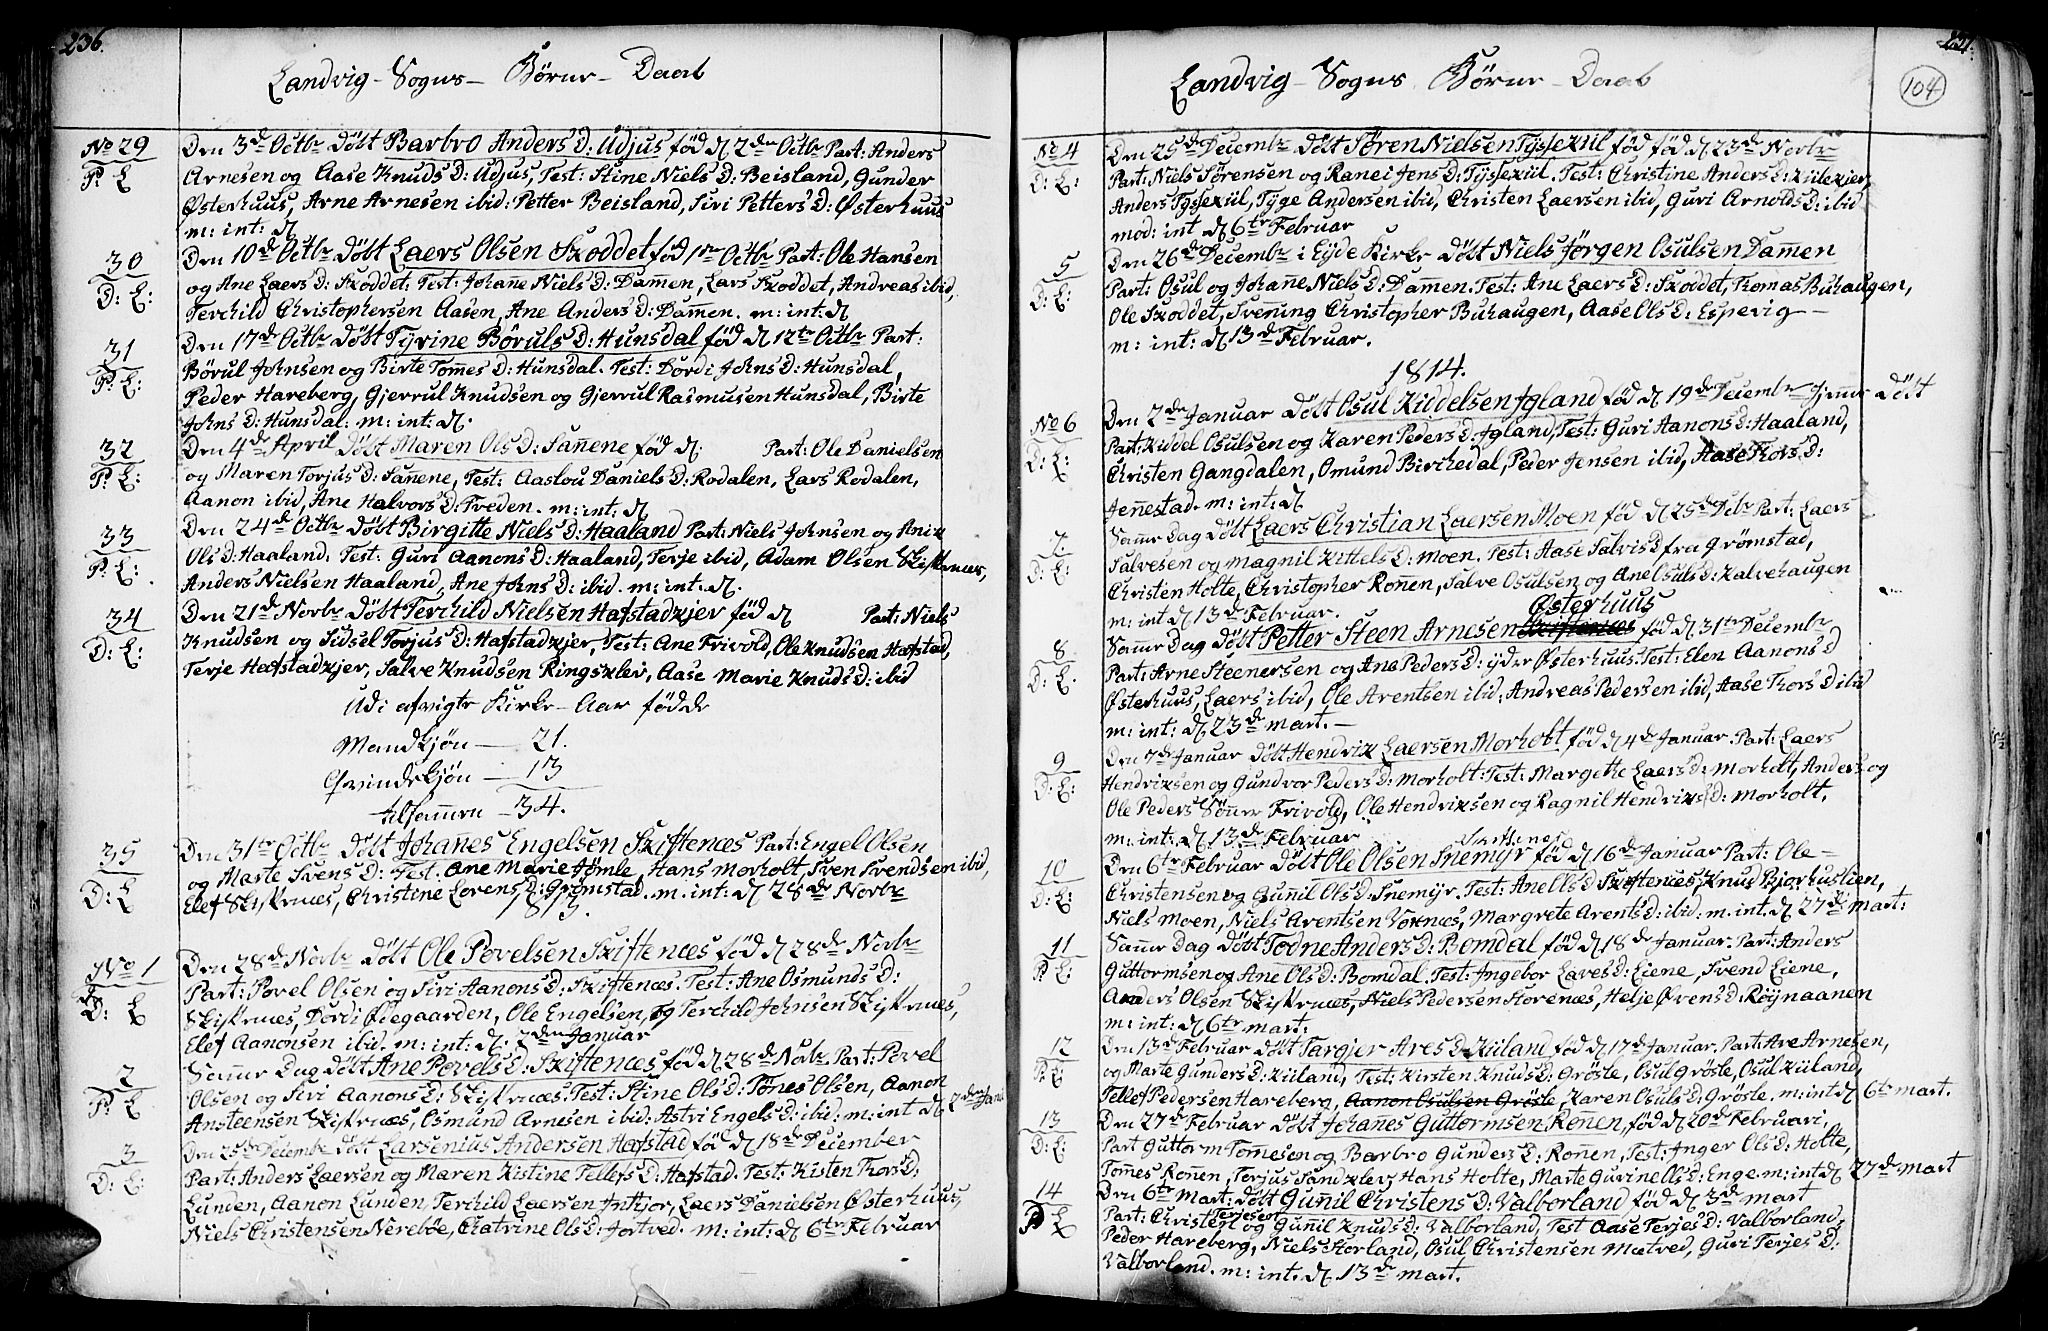 236.
Landvig - Sogns - Børne - Daab
No 29
P: E
Den 3de Octbr døbt Barbro Anders D: Udjus fød d 2den Octbr Part: Anders
Arnesen og Aase Knuds D: Udjus, Test: Stine Niels D: Beisland, Gunder
Østerhuus, Arne Arnesen ibid: Petter Beisland, Siri Petters D: Østerhuus
m: int: d
30
D: E:
Den 10de Octbr døbt Laers Olsen Skoddet fød 1te Octbr Part: Ole Hansen
og Ane Laers D: Skoddet: Test: Johan̅e Niels D: Dam̅en, Lars Skoddet, Andreas ibid,
Terchild Christophersen Aasen, Ane Anders D: Dam̅en. m: int: d
31
P: E:
Den 17de Octbr døbt Tyrine Børuls D: Hunsdal fød d 12te Octbr Part:
Børul Johnsen og Birte Tom̅es D: Hunsdal. Test: Dordi Johns D: Hunsdal,
Peder Hareberg, Gjerrul Knudsen og Gjerrul Rasmusen Hunsdal, Birte
Johns D: Hunsdal: m: int: d.
32
P: E:
Den 4de April døbt Maren Ols D: San̅ene fød d. Part: Ole Danielsen
og Maren Torjus D: San̅ene, Test: Aaslou Daniels D: Rodalen, Lars Rodalen,
Aanon ibid, Ane Halvors D: Treden. m: int: d
33
P: E:
Den 24de Octbr døbt Birgitte Niels D: Haaland Part: Niels Johnsen og Anix
Ols D: Haaland. Test: Guri Aanons D: Haaland, Terje ibid, Adam Olsen Skiftenæs,
Anders Nielsen Haaland, Ane Johns D: ibid. m: int. d.
34
D: E:
Den 21de Novbr døbt Terchild Nielsen Hafstadkjer fød d Part: Niels
Knudsen og Sidsel Torjus D: Hafstadkjer, Test: Ane Frivold, Ole Knudsen Hafstad,
Terje Hafstadkjer, Salve Knudsen Ringsklev, Aase Marie Knuds D: ibid
Udi afvigte Kirke-Aar fødde
Mandkjøn — 21.
Qvindekjøn — 13
tilsam̅en — 34.
35
D: E
Den 31te Octbr døbt Johan̅es Engelsen Skiftenæs Part: Engel Olsen
og Marte Svens D: Test: Ane Marie Jømle, Hans Morholt, Sven Svendsen ibid,
Elef Skiftenæs, Christine Lorens D: Grømstad. m. int: d 28de Novbr
1813.
No 1
D: E
Den 28de Novbr døbt Ole Povelsen Skiftenæs fød d 28de Novbr
Part: Povel Olsen og Siri Aanons D: Skiftenæs. Test: Ane Osmunds D:
Skiftenæs, Dordi Ødegaarden, Ole Engelsen, og Terchild Johnsen Skiftenæs,
Elef Aanonsen ibid. m: int: d. 2den Januar
2
P: E
Sam̅e Dag døbt Ane Povels D: Skiftenæs fød d 28de Novbr. Part: Povel
Olsen og Siri Aanons D: Skiftenæs. Test: Stine Ols D: Tønes Olsen, Aanon
Ansteensen Skiftenæs, Osmund Arnesen ibid: Astri Engels D: ibid: m: int d 2den Janr
3
D: E:
Den 25de Decembr døbt Larsenius Andersen Hafstad fød d 18de December
Part: Anders Laersen og Maren Kistine Tellefs D: Hafstad. Test: Kisten Thors D:
Lunden, Aanon Lunden, Terchild Laersen Inthjor, Laers Danielsen Østerhuus,
Niels Christensen Nereboe, Chatrine Ols D: Jortved. m: int: d 6te Februar
237.
104
Landvig - Sogns Børne - Daab
No 4
D: E:
Den 25de Decembr døbt Søren Nielsen Tyssekiil fød fød d 23de Novbr
Part: Niels Sørensen og Ranei Jens D: Tyssekiil. Test: Christine Anders D: Kilekier,
Anders Tyssekiil, Tyge Andersen ibid, Christen Laersen ibid, Guri Arnolds D: ibid
mod: int d 6te Februar
5
D: E:
Den 26de Decembr i Eyde Kirke døbt Niels Jørgen Osulsen Dam̅en
Part: Osul og Johan̅e Niels D: Dam̅en. Test: Ane Laers D: Skoddet, Thomas Buhaugen,
Ole Skoddet, Svenning Christopher Buhaugen, Aase Ols D: Espevig —
m: int: d 13de Februar.
1814.
No 6
D: E:
Den 2de Januar døbt Osul Kiddelsen Igland fød d 19de Decembr hjem̅e døbt
Part: Kiddel Osulsen og Karen Peders D: Igland, Test: Guri Aanons D: Haaland,
Christen Gangdalen, Omund Birchedal, Peder Jensen ibid, Aase Thors D:
Jen̅estad. m: int: d
7.
D: E:
Sam̅e Dag døbt Laers Christian Laersen Moen fød d 25de Debr Part: Laers
Salvesen og Magnil Kittels D: Moen. Test: Aase Salvis D fra Grømstad,
Christen Holte, Christopher Ron̅en, Salve Osulsen og Ane Osuls D: Kalvehaugen
m: int d 13de Februar.
8
D: E.
Østerhuus
Sam̅e Dag døbt Petter Steen Arnesen Skiftenæs fød d 31te Decembr
Part: Arne Steenersen og Ane Peders D: ydre Østerhuus: Test: Elen Aanons D
Østerhuus, Laers ibid, Ole Arentsen ibid, Andreas Pedersen ibid, Aase Thors D ibid
m: int: d 23de Mart. —
9
D: E:
Den 7de Januar døbt Hendrix Laersen Morholt fød d 4de Januar. Part: Laers
Hendrixsen og Gundvor Peders D: Morholt: Test: Margethe Laers D: Morholt, Anders og
Ole Peders Søn̅er Frivold, Ole Hendrixsen og Ragnil Hendrixs D: Morholt.
m: int: d 13de Februar
10
D: E:
Den 6te Februar døbt Ole Olsen Snemyr fød d 16de Januar Part: Ole —
Christensen og Gun̅il Ols D: Snemyr. Test: Ane Ols D Skiftenæs, Knud Bjorhuslien,
Niels Moen, Niels Arentsen Voxnæs, Margrete Arents D: ibid: m: int. d 27de Mart:
11
P: E:
Sam̅e Dag døbt Todne Anders D: Bomdal fød d 18de Januar. Part: Anders
Guttormsen og Ane Ols D: Bomdal. Test: Ingebor Laves D: Liene, Svend Liene,
Anders Olsen Skiftenæs, Niels Pedersen Storenæs, Helje Øvens D: Røynaanen
m: int: d 6te Mart:
12
P: E
Den 13de Februar døbt Targjer Ares D Kiiland fød d 17de Januar. Part: Are Arnesen,
og Marte Gunders D: Kiiland, Test: Kirsten Knuds D: Grøsle, Osul Grøsle, Osul Kiiland,
Tellef Pedersen Hareberg, Aanon Osulsen Grøsle, Karen Osuls D: Grøsle. m: int d 6te Mart.
13
D: E:
Den 27de Februar døbt Johan̅es Guttormsen Ron̅en, fød d 20de Februari,
Part Guttorm Tom̅esen og Barbro Gunders D: Ron̅en, Test: Inger Ols D: Holte,
Tom̅es Ron̅en, Torjus Sandklev, Hans Holte, Marte Gurinells D: Enge. m: int d 27de Mart
14
P: E
Den 6te Mart: døbt Gun̅il Christens D: Valborland fød d 3de Mart
Part: Christen Terjesen og Gun̅il Knuds D: Valborland, Test Aase Terjes D: Valborland,
Peder Hareberg, Niels Storland, Osul Christensen Mætved, Guri Terjes D:
Valborland. m: int: d 13de Mart.